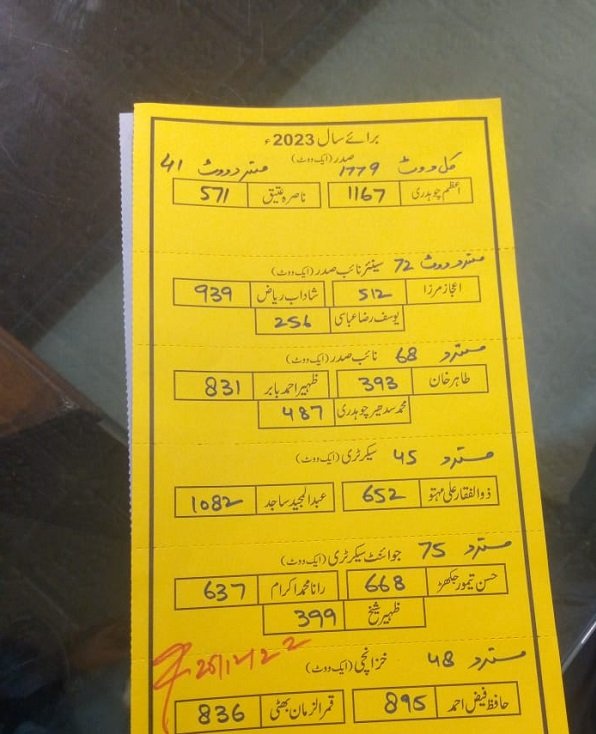 برائے سال 2023ء
کل ووٹ 1779 صدر (ایک ووٹ) مسترد ووٹ 41
اعظم چوہدری 1167 ناصرہ عتیق 571
مسترد ووٹ 72 سینئر نائب صدر (ایک ووٹ)
اعجاز مرزا 512 شاداب ریاض 939
یوسف رضا عباسی 256
مسترد 68 نائب صدر (ایک ووٹ)
طاہر خان 393 ظہیر احمد بابر 831
محمد سدھیر چوہدری 487
مسترد 45 سیکرٹری (ایک ووٹ)
ذوالفقار علی مہتو 652 عبدالمجید ساجد 1082
مسترد 75 جوائنٹ سیکرٹری (ایک ووٹ)
حسن تیمور جکھڑ 668 رانا محمد اکرام 637
ظہیر شیخ 399
مسترد 48 خزانچی (ایک ووٹ)
حافظ فیض احمد 895 قمر الزمان بھٹی 836